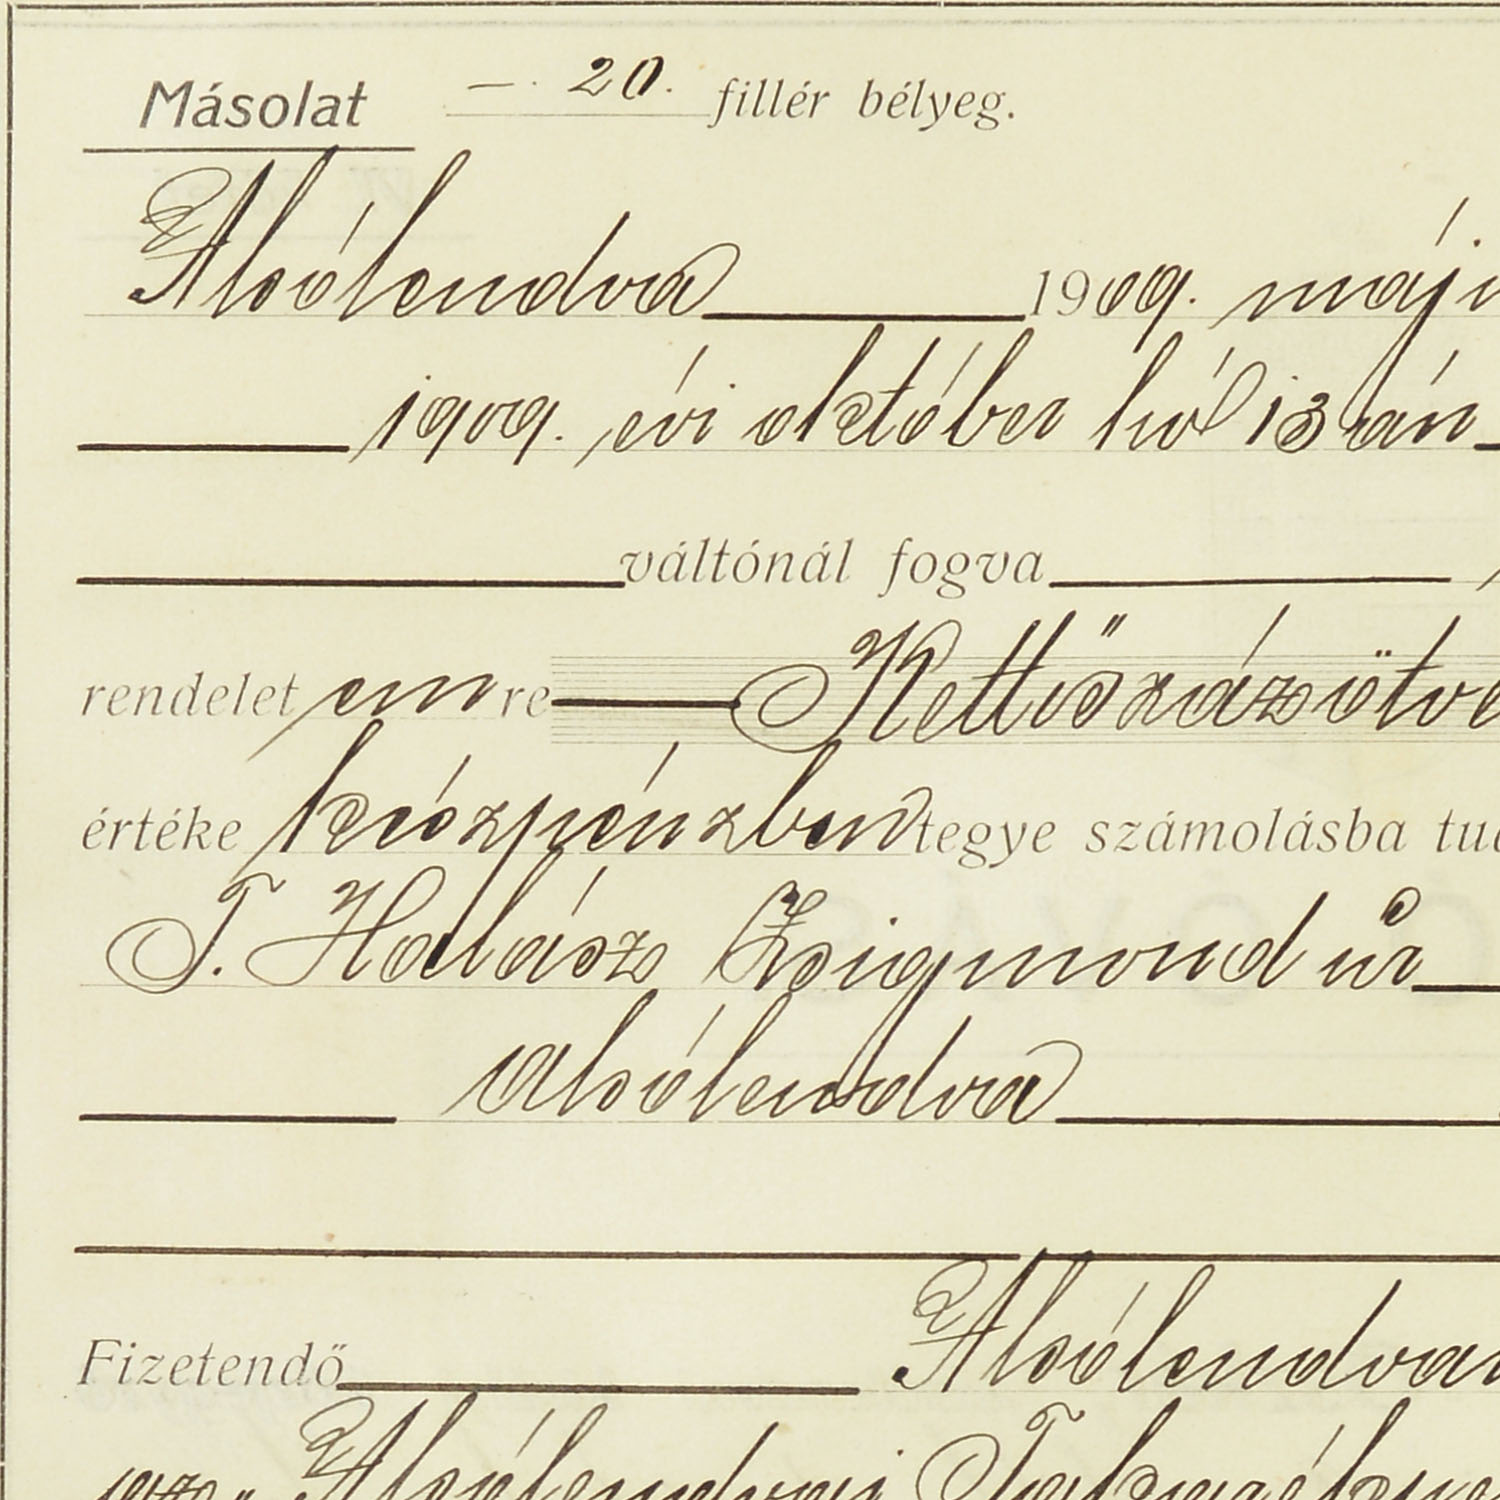 Másolat — . 20. fillér bélyeg.
Alsólendva 1909. máju
1909. évi október hó 13 án
váltónál fogva
rendelet em re Kettőszázötve
értéke készpénzben tegye számolásba tud
T. Halász Zsigmond úr
Alsólendva
Fizetendő Alsólendván
Alsólendvai Takarékpé